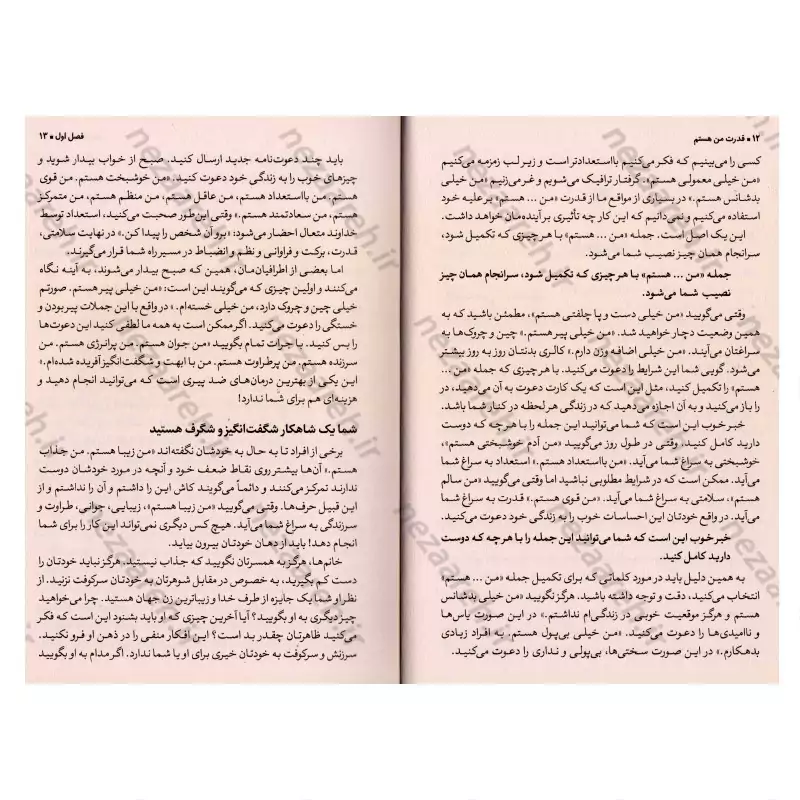 ۱۲ ■ قدرت من هستم
کسی را می‌بینیم که فکر می‌کنیم بااستعدادتر است و زیر لب زمزمه می‌کنیم
«من خیلی معمولی هستم». گرفتار ترافیک می‌شویم و غر می‌زنیم «من خیلی
بدشانس هستم.» در بسیاری از مواقع ما از قدرت «من ... هستم» بر علیه خود
استفاده می‌کنیم و نمی‌دانیم که این کار چه تأثیری بر آینده‌مان خواهد داشت.
این یک اصل است. جمله «من ... هستم» با هر چیزی که تکمیل شود،
سرانجام همان چیز نصیب شما می‌شود.
جمله «من ... هستم» با هر چیزی که تکمیل شود، سرانجام همان چیز
نصیب شما می‌شود.
وقتی می‌گویید «من خیلی دست و پا چلفتی هستم»، مطمئن باشید که به
همین وضعیت دچار خواهید شد. «من خیلی پیر هستم.» چین و چروک‌ها به
سراغتان می‌آیند. «من خیلی اضافه وزن دارم.» کالری بدنتان روز به روز بیشتر
می‌شود. گویی شما این شرایط را دعوت می‌کنید. با هر چیزی که جمله «من ...
هستم» را تکمیل کنید، مثل این است که یک کارت دعوت به آن می‌دهید، در
را باز می‌کنید و به آن اجازه می‌دهید که در زندگی هر لحظه در کنار شما باشد.
خبر خوب این است که شما می‌توانید این جمله را با هر چه که دوست
دارید کامل کنید. وقتی در طول روز می‌گویید «من آدم خوشبختی هستم»،
خوشبختی به سراغ شما می‌آید. «من بااستعداد هستم.» استعداد به سراغ شما
می‌آید. ممکن است که در شرایط مطلوبی نباشید اما وقتی می‌گویید «من سالم
هستم»، سلامتی به سراغ شما می‌آید. «من قوی هستم.» قدرت به سراغ شما
می‌آید. در واقع خودتان این احساسات خوب را به زندگی خود دعوت می‌کنید.
خبر خوب این است که شما می‌توانید این جمله را با هر چه که دوست
دارید کامل کنید.
به همین دلیل باید در مورد کلماتی که برای تکمیل جمله «من ... هستم»
انتخاب می‌کنید، دقت و توجه داشته باشید. هرگز نگویید «من خیلی بدشانس
هستم و هرگز موقعیت خوبی در زندگی‌ام نداشتم.» در این صورت یاس‌ها
و ناامیدی‌ها را دعوت می‌کنید. «من خیلی بی‌پول هستم. به افراد زیادی
بدهکارم.» در این صورت سختی‌ها، بی‌پولی و نداری را دعوت می‌کنید.
فصل اول ■ ۱۳
باید چند دعوت‌نامه جدید ارسال کنید. صبح از خواب بیدار شوید و
چیزهای خوب را به زندگی خود دعوت کنید. «من خوشبخت هستم. من قوی
هستم. من بااستعداد هستم، من عاقل هستم، من منظم هستم، من متمرکز
هستم، من سعادتمند هستم.» وقتی این طور صحبت می‌کنید، استعداد توسط
خداوند متعال احضار می‌شود: «برو آن شخص را پیدا کن.» در نهایت سلامتی،
قدرت، برکت و فراوانی و نظم و انضباط در مسیر راه شما قرار می‌گیرند.
اما بعضی از اطرافیان‌مان، همین که صبح بیدار می‌شوند، به آینه نگاه
می‌کنند و اولین چیزی که می‌گویند این است: «من خیلی پیر هستم. صورتم
خیلی چین و چروک دارد، من خیلی خسته‌ام.» در واقع با این جملات پیر بودن و
خستگی را دعوت می‌کنید. اگر ممکن است به همه ما لطفی کنید این دعوت‌ها
را بس کنید. با جرات تمام بگویید «من جوان هستم. من پرانرژی هستم. من
سرزنده هستم. من پرطراوت هستم. من با ابهت و شگفت‌انگیز آفریده شده‌ام.»
این یکی از بهترین درمان‌های ضد پیری است که می‌توانید انجام دهید و
هزینه‌ای هم برای شما ندارد!
شما یک شاهکار شگفت‌انگیز و شگرف هستید
برخی از افراد تا به حال به خودشان نگفته‌اند «من زیبا هستم. من جذاب
هستم.» آن‌ها بیشتر روی نقاط ضعف خود و آنچه در مورد خودشان دوست
ندارند تمرکز می‌کنند و دائماً می‌گویند کاش این را داشتم و آن را نداشتم و از
این قبیل حرف‌ها. وقتی می‌گویید «من زیبا هستم»، زیبایی، جوانی، طراوت و
سرزندگی به سراغ شما می‌آید. هیچ کس دیگری نمی‌تواند این کار را برای شما
انجام دهد! باید از دهان خودتان بیرون بیاید.
خانم‌ها، هرگز به همسرتان نگویید که جذاب نیستید. هرگز نباید خودتان را
دست کم بگیرید، به خصوص در مقابل شوهرتان به خودتان سرکوفت نزنید. از
نظر او شما یک جایزه از طرف خدا و زیباترین زن جهان هستید. چرا می‌خواهید
چیز دیگری به او بگویید؟ آیا آخرین چیزی که او باید بشنود این است که فکر
می‌کنید ظاهرتان چقدر بد است؟ این افکار منفی را در ذهن او فرو نکنید.
سرزنش و سرکوفت به خودتان خیری برای او یا شما ندارد. اگر مدام به او بگویید
nezaareh.ir